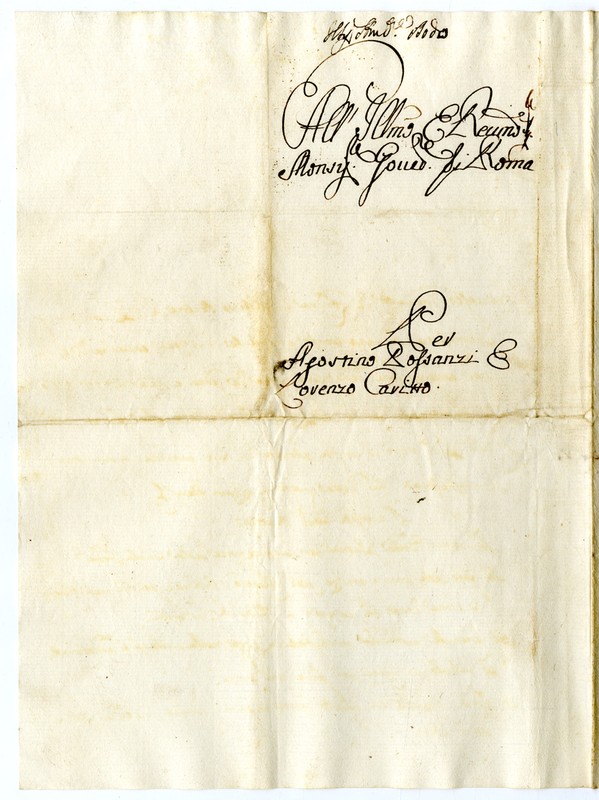 All' Illmo E Revmo
Monsig.re Gover.re di Roma
Per
Agostino Rossanzi E
Lorenzo Caritto.